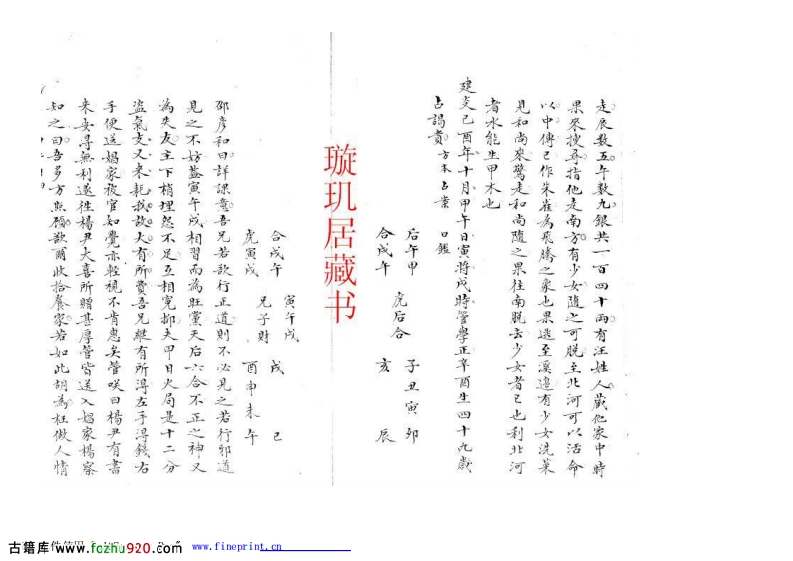 走辰数五午数九銀共一百四十兩有汪姓人藏他家申時
果來搜尋指他走南方有少女隨之可脱主北河可以活命
以中傳巳作朱雀為飛騰之象也果逃至溪邉有少女洗菜
見和尚來驚走和尚隨之果往南脱去少女者巳也利北河
者水能生甲木也
建炎己酉年十月甲午日寅將戌時管學正辛酉生四十九歲
占謁貴 方本占業 口鑑
后午甲 虎后合 子丑寅卯
合戌午 亥 辰
璇玑居藏书
寅午戌 戌 巳
合戌午 兄子財
虎寅戌 酉申未午
邵彦和曰詳課意吾兄若欲行正道則不必見之若行邪道
見之不妨蓋寅午戌相習而為旺黨天后六合不正之神又
為失友主下梢埋怨不足互相寛抑夫甲日火局是十二分
盜氣支又來耗我故大有所費吾兄縱有所得左手得錢右
手便送娼家被官知覺亦輕視不肯惠矣管咲曰楊尹有書
來安得無利遂往楊尹大喜所贈甚厚管皆送入娼家楊察
知之曰吾多方照顧欲爾收拾養家若如此胡為枉做人情
古籍库 www.fozhu920.com
www.fineprint.cn